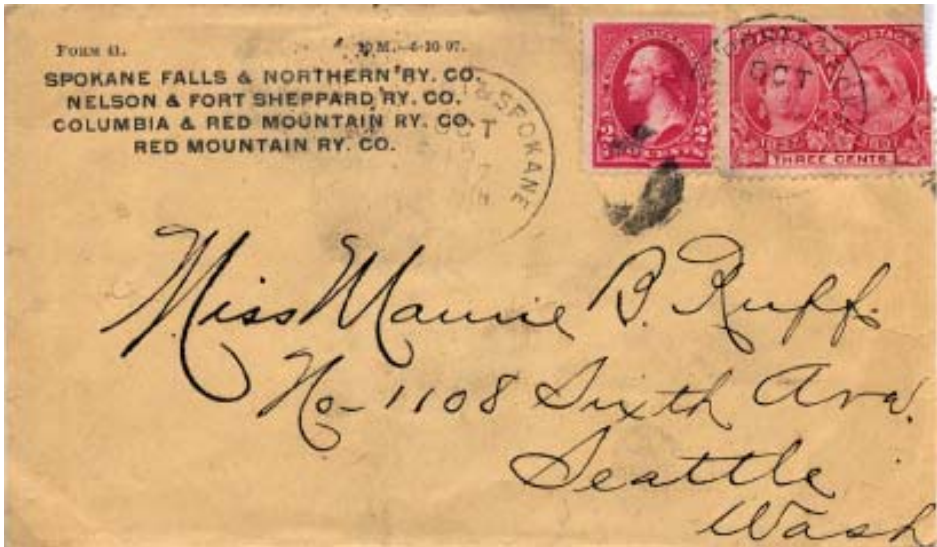 FORM 41. 10 M.—6-10 97.
SPOKANE FALLS & NORTHERN RY. CO.
NELSON & FORT SHEPPARD RY. CO.
COLUMBIA & RED MOUNTAIN RY. CO.
RED MOUNTAIN RY. CO.
& SPOKANE
OCT
2 2
OCT
THREE CENTS
Miss Mamie B. Ruff.
No-1108 Sixth Ave.
Seattle
Wash